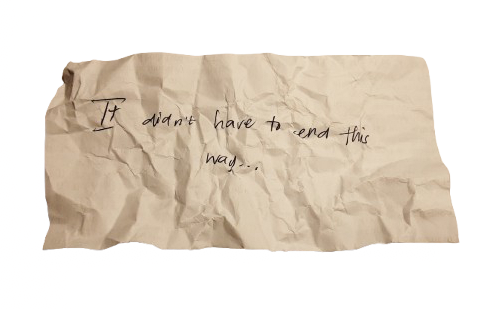 It didn't have to end this
way...